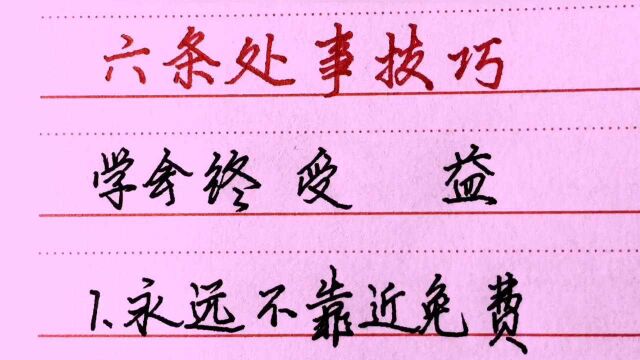 六条处事技巧
学会终受 益
1.永远不靠近免费